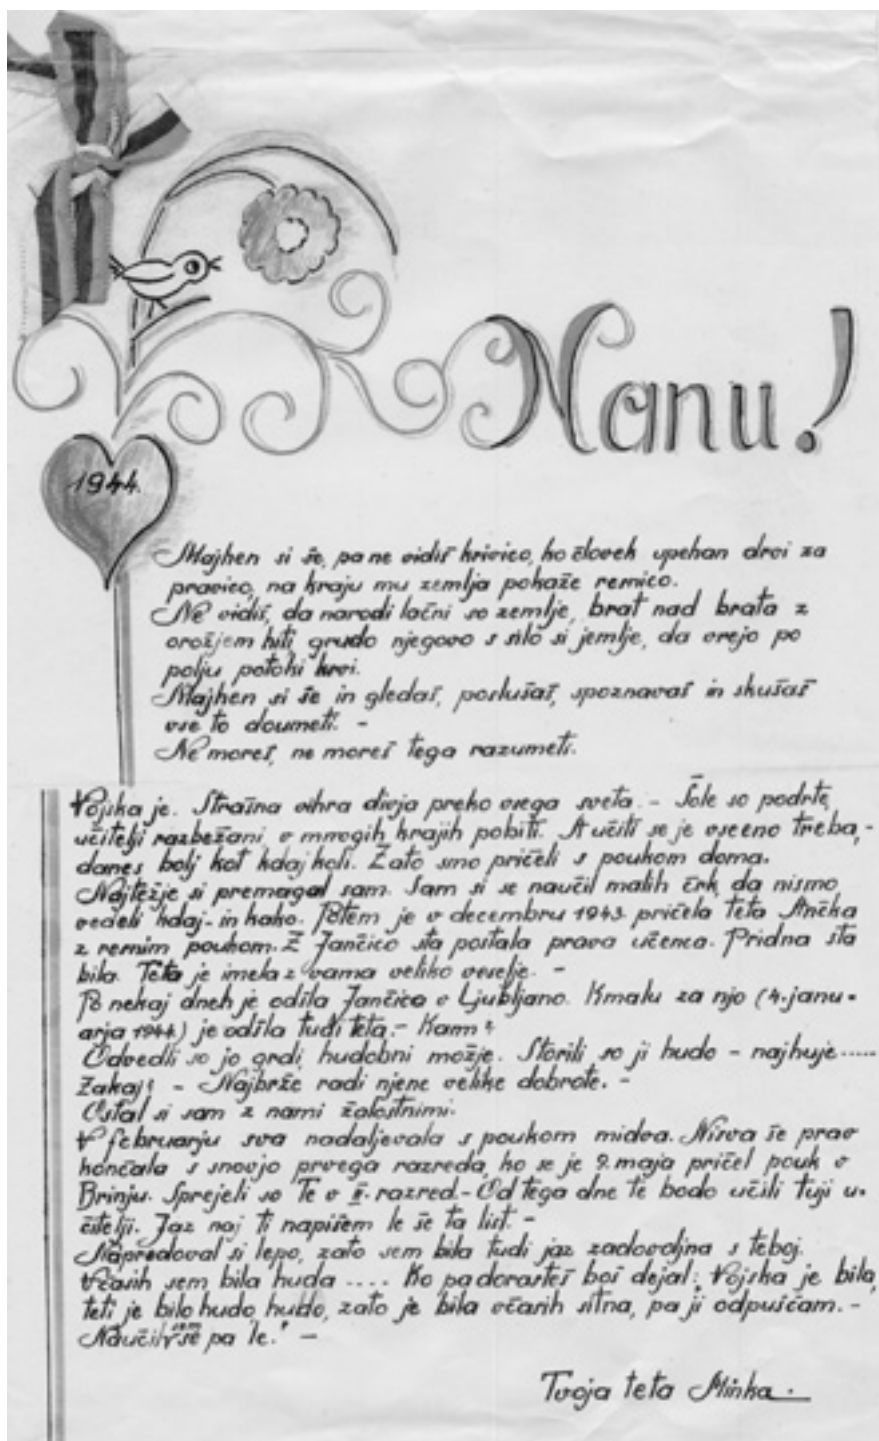 Nanu!
1944.
Majhen si še, pa ne vidiš krivico, ko človek upehan drvi za
pravico, na kraju mu zemlja pokaže remico.
Ne vidiš, da narodi lačni so zemlje, brat nad brata z
orožjem hiti, grudo njegovo s silo si jemlje, da vrejo po
polju potoki krvi.
Majhen si še in gledaš, poslušaš, spoznavaš in skušaš
vse to doumeti. -
Ne moreš, ne moreš tega razumeti.
Vojska je. Strašna vihra divja preko vsega sveta. - Šole so podrte,
učitelji razbežani v mnogih krajih pobiti. A učiti se je vseeno treba, -
danes bolj kot kdaj koli. Zato smo pričeli s poukom doma.
Najtežje si premagal sam. Sam si se naučil malih črk, da nismo
vedeli kdaj - in kako. Potem je v decembru 1943. pričela teta Ančka
z remim poukom. Z Jančico sta postala prava učenca. Pridna sta
bila. Teta je imela z vama veliko veselje. -
Po nekaj dneh je odšla Jančica v Ljubljano. Kmalu za njo (4. janu-
arja 1944) je odšla tudi teta. - Kam?
Odvedli so jo grdi, hudobni možje. Storili so ji hudo - najhuje.....
Zakaj? - Najbrže radi njene velike dobrote. -
Ostal si sam z nami žalostnimi.
V februarju sva nadaljevala s poukom midva. Nisva še prav
končala s snovjo prvega razreda, ko se je 9. maja pričel pouk v
Brinju. Sprejeli so Te v II. razred. - Od tega dne te bodo učili tuji u-
čitelji. Jaz naj ti napišem le še ta list. -
Napredoval si lepo, zato sem bila tudi jaz zadovoljna s teboj.
Včasih sem bila huda .... Ko pa dorasteš boš dejal: Vojska je bila,
teti je bilo hudo, hudo, zato je bila včasih sitna, pa ji odpuščam. -
Naučil sem se pa le." -
Tvoja teta Minka.